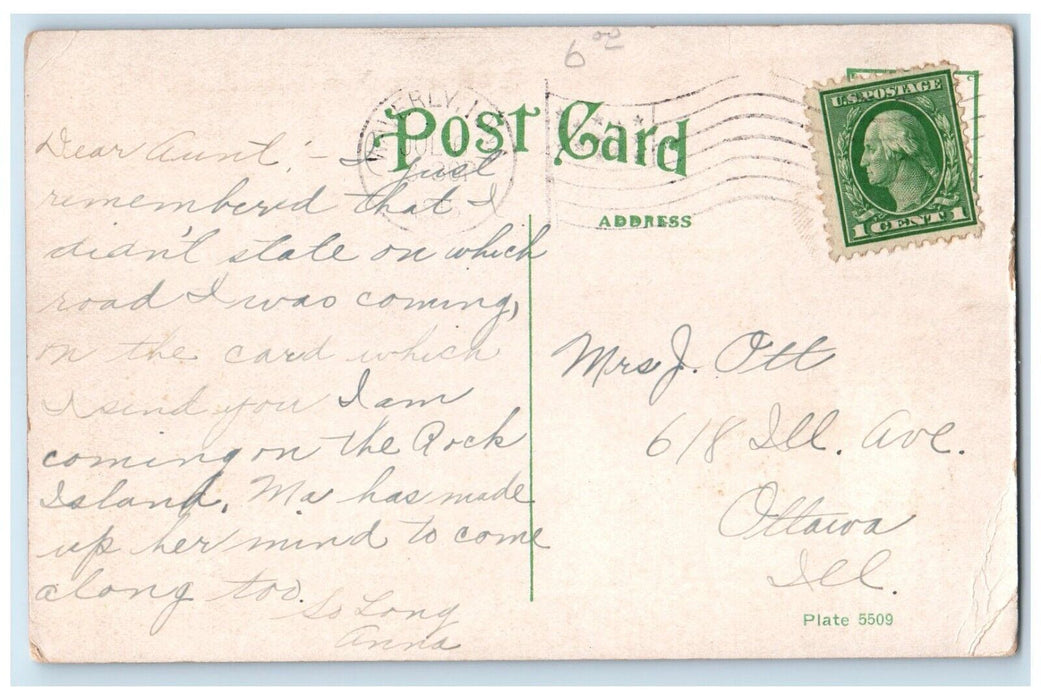 6 00
POST CARD
U.S. POSTAGE
1 CENT 1
ADDRESS
Dear Aunt! - I just
remembered that I
didn't state on which
road I was coming,
on the card which
I send you I am
coming on the Rock
Island. Ma has made
up her mind to come
along too.
So Long
Anna
Mrs J. Ott
618 Ill. Ave.
Ottawa
Ill.
Plate 5509